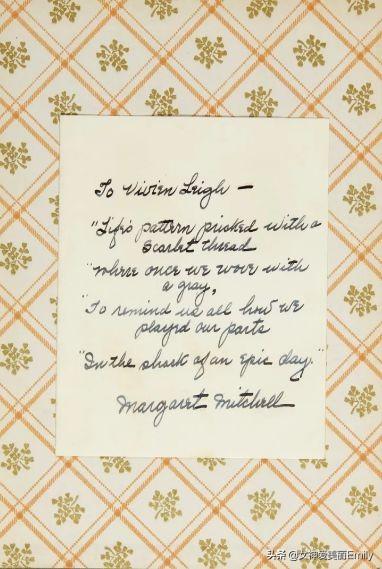 To Vivien Leigh —
"Life's pattern pricked with a
scarlet thread
"where once we wove with
a gray,
"To remind us all how we
played our parts
"In the shock of an epic day."
Margaret Mitchell
头条 @女神爱美丽Emily